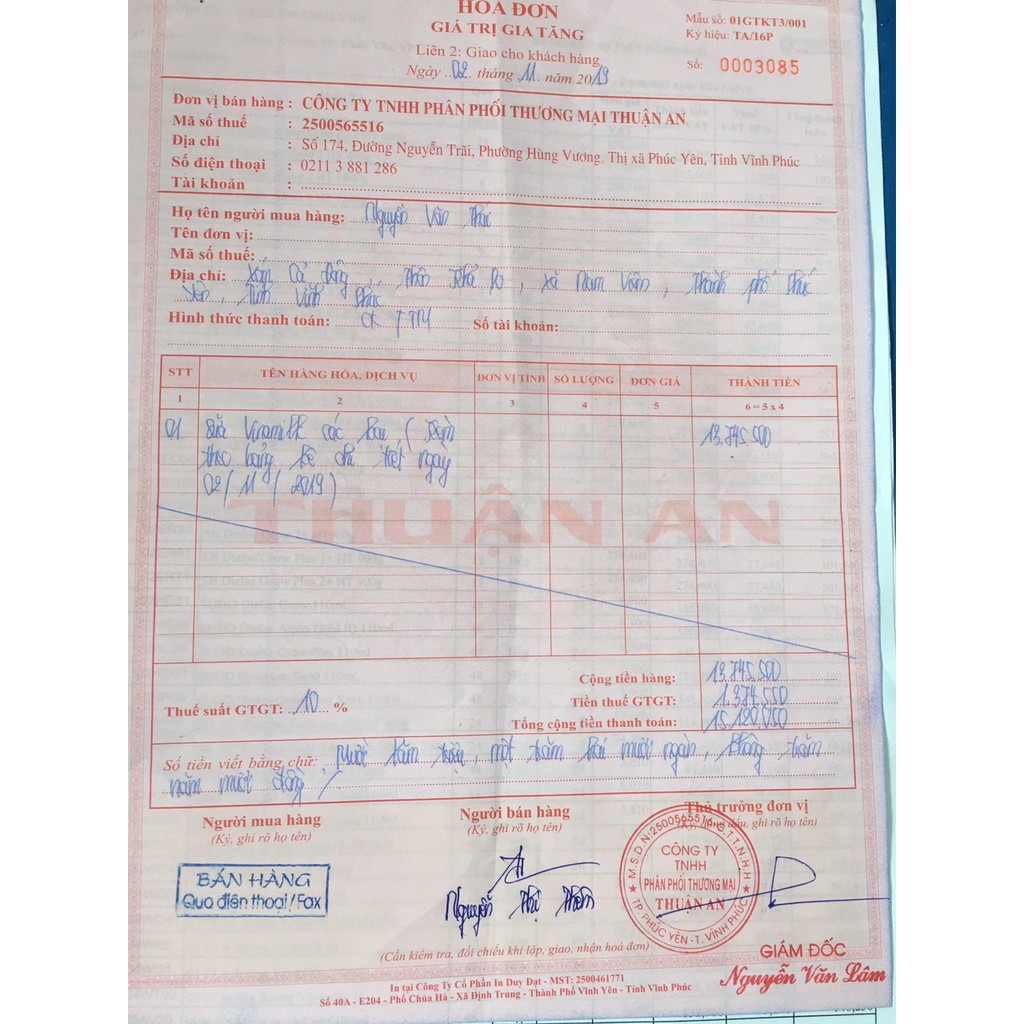 HÓA ĐƠN
GIÁ TRỊ GIA TĂNG
Liên 2: Giao cho khách hàng
Ngày 02 tháng 11 năm 2019
Mẫu số: 01GTKT3/001
Ký hiệu: TA/16P
Số: 0003085
Đơn vị bán hàng : CÔNG TY TNHH PHÂN PHỐI THƯƠNG MẠI THUẬN AN
Mã số thuế : 2500565516
Địa chỉ : Số 174, Đường Nguyễn Trãi, Phường Hùng Vương, Thị xã Phúc Yên, Tỉnh Vĩnh Phúc
Số điện thoại : 0211 3 881 286
Tài khoản :
Họ tên người mua hàng: Nguyễn Văn
Tên đơn vị:
Mã số thuế:
Địa chỉ: Xóm Cả Đông, xã Nam Viêm, Thành phố Phúc
Yên, Tỉnh Vĩnh Phúc
Hình thức thanh toán: CK / TM Số tài khoản:
STT TÊN HÀNG HÓA, DỊCH VỤ ĐƠN VỊ TÍNH SỐ LƯỢNG ĐƠN GIÁ THÀNH TIỀN
1 2 3 4 5 6 = 5 x 4
01 Sữa Vinamilk các loại (kèm 13.745.500
theo bảng kê chi tiết ngày
02/11/2019)
THUẬN AN
Cộng tiền hàng: 13.745.500
Thuế suất GTGT: 10 % Tiền thuế GTGT: 1.374.550
Tổng cộng tiền thanh toán: 15.120.050
Số tiền viết bằng chữ: Mười lăm triệu, một trăm hai mươi ngàn, không trăm
năm mươi đồng
Người mua hàng
(Ký, ghi rõ họ tên)
Người bán hàng
(Ký, ghi rõ họ tên)
Thủ trưởng đơn vị
dấu, ghi rõ họ tên)
BÁN HÀNG
Qua điện thoại/Fax
Nguyễn Thị Thơm
M.S.D.N:2500565516-C.T.T.N.H.H
CÔNG TY
TNHH
PHÂN PHỐI THƯƠNG MẠI
THUẬN AN
TP. PHÚC YÊN - T. VĨNH PHÚC
(Cần kiểm tra, đối chiếu khi lập, giao, nhận hoá đơn)
GIÁM ĐỐC
Nguyễn Văn Lâm
In tại Công Ty Cổ Phần In Duy Đạt - MST: 2500461771
Số 40A - E204 - Phố Chùa Hà - Xã Định Trung - Thành Phố Vĩnh Yên - Tỉnh Vĩnh Phúc